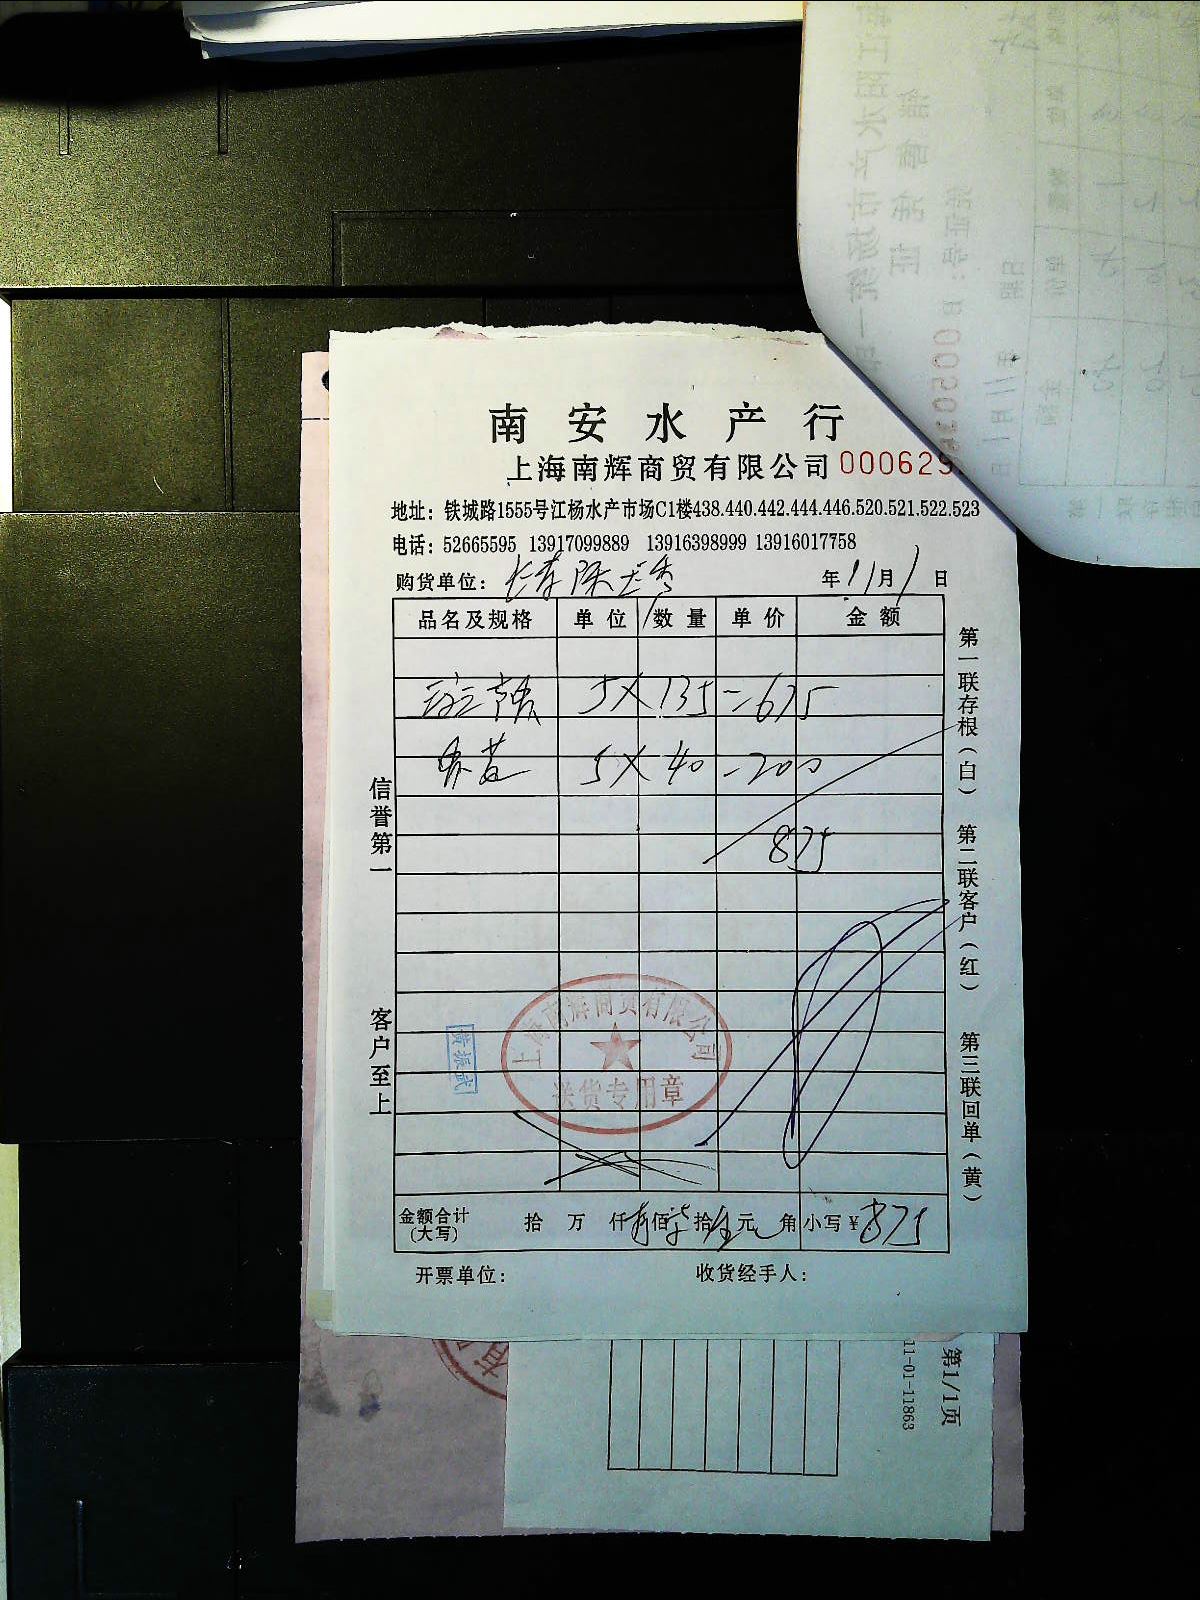 南安水产行
上海南辉商贸有限公司 000629
地址：铁城路1555号江杨水产市场C1楼438.440.442.444.446.520.521.522.523
电话：52665595 13917099889 13916398999 13916017758
购货单位： 年 11 月 1 日
品名及规格 单位 数量 单价 金额
5×135=675
5×40=200
875
信誉第一
客户至上
第一联存根（白） 第二联客户（红） 第三联回单（黄）
上海南辉商贸有限公司
送货专用章
黄振武
金额合计（大写） 拾 万 仟 捌 佰 柒 拾 伍 元 角 小写￥875
开票单位： 收货经手人：
第1/1页
11-01-11863